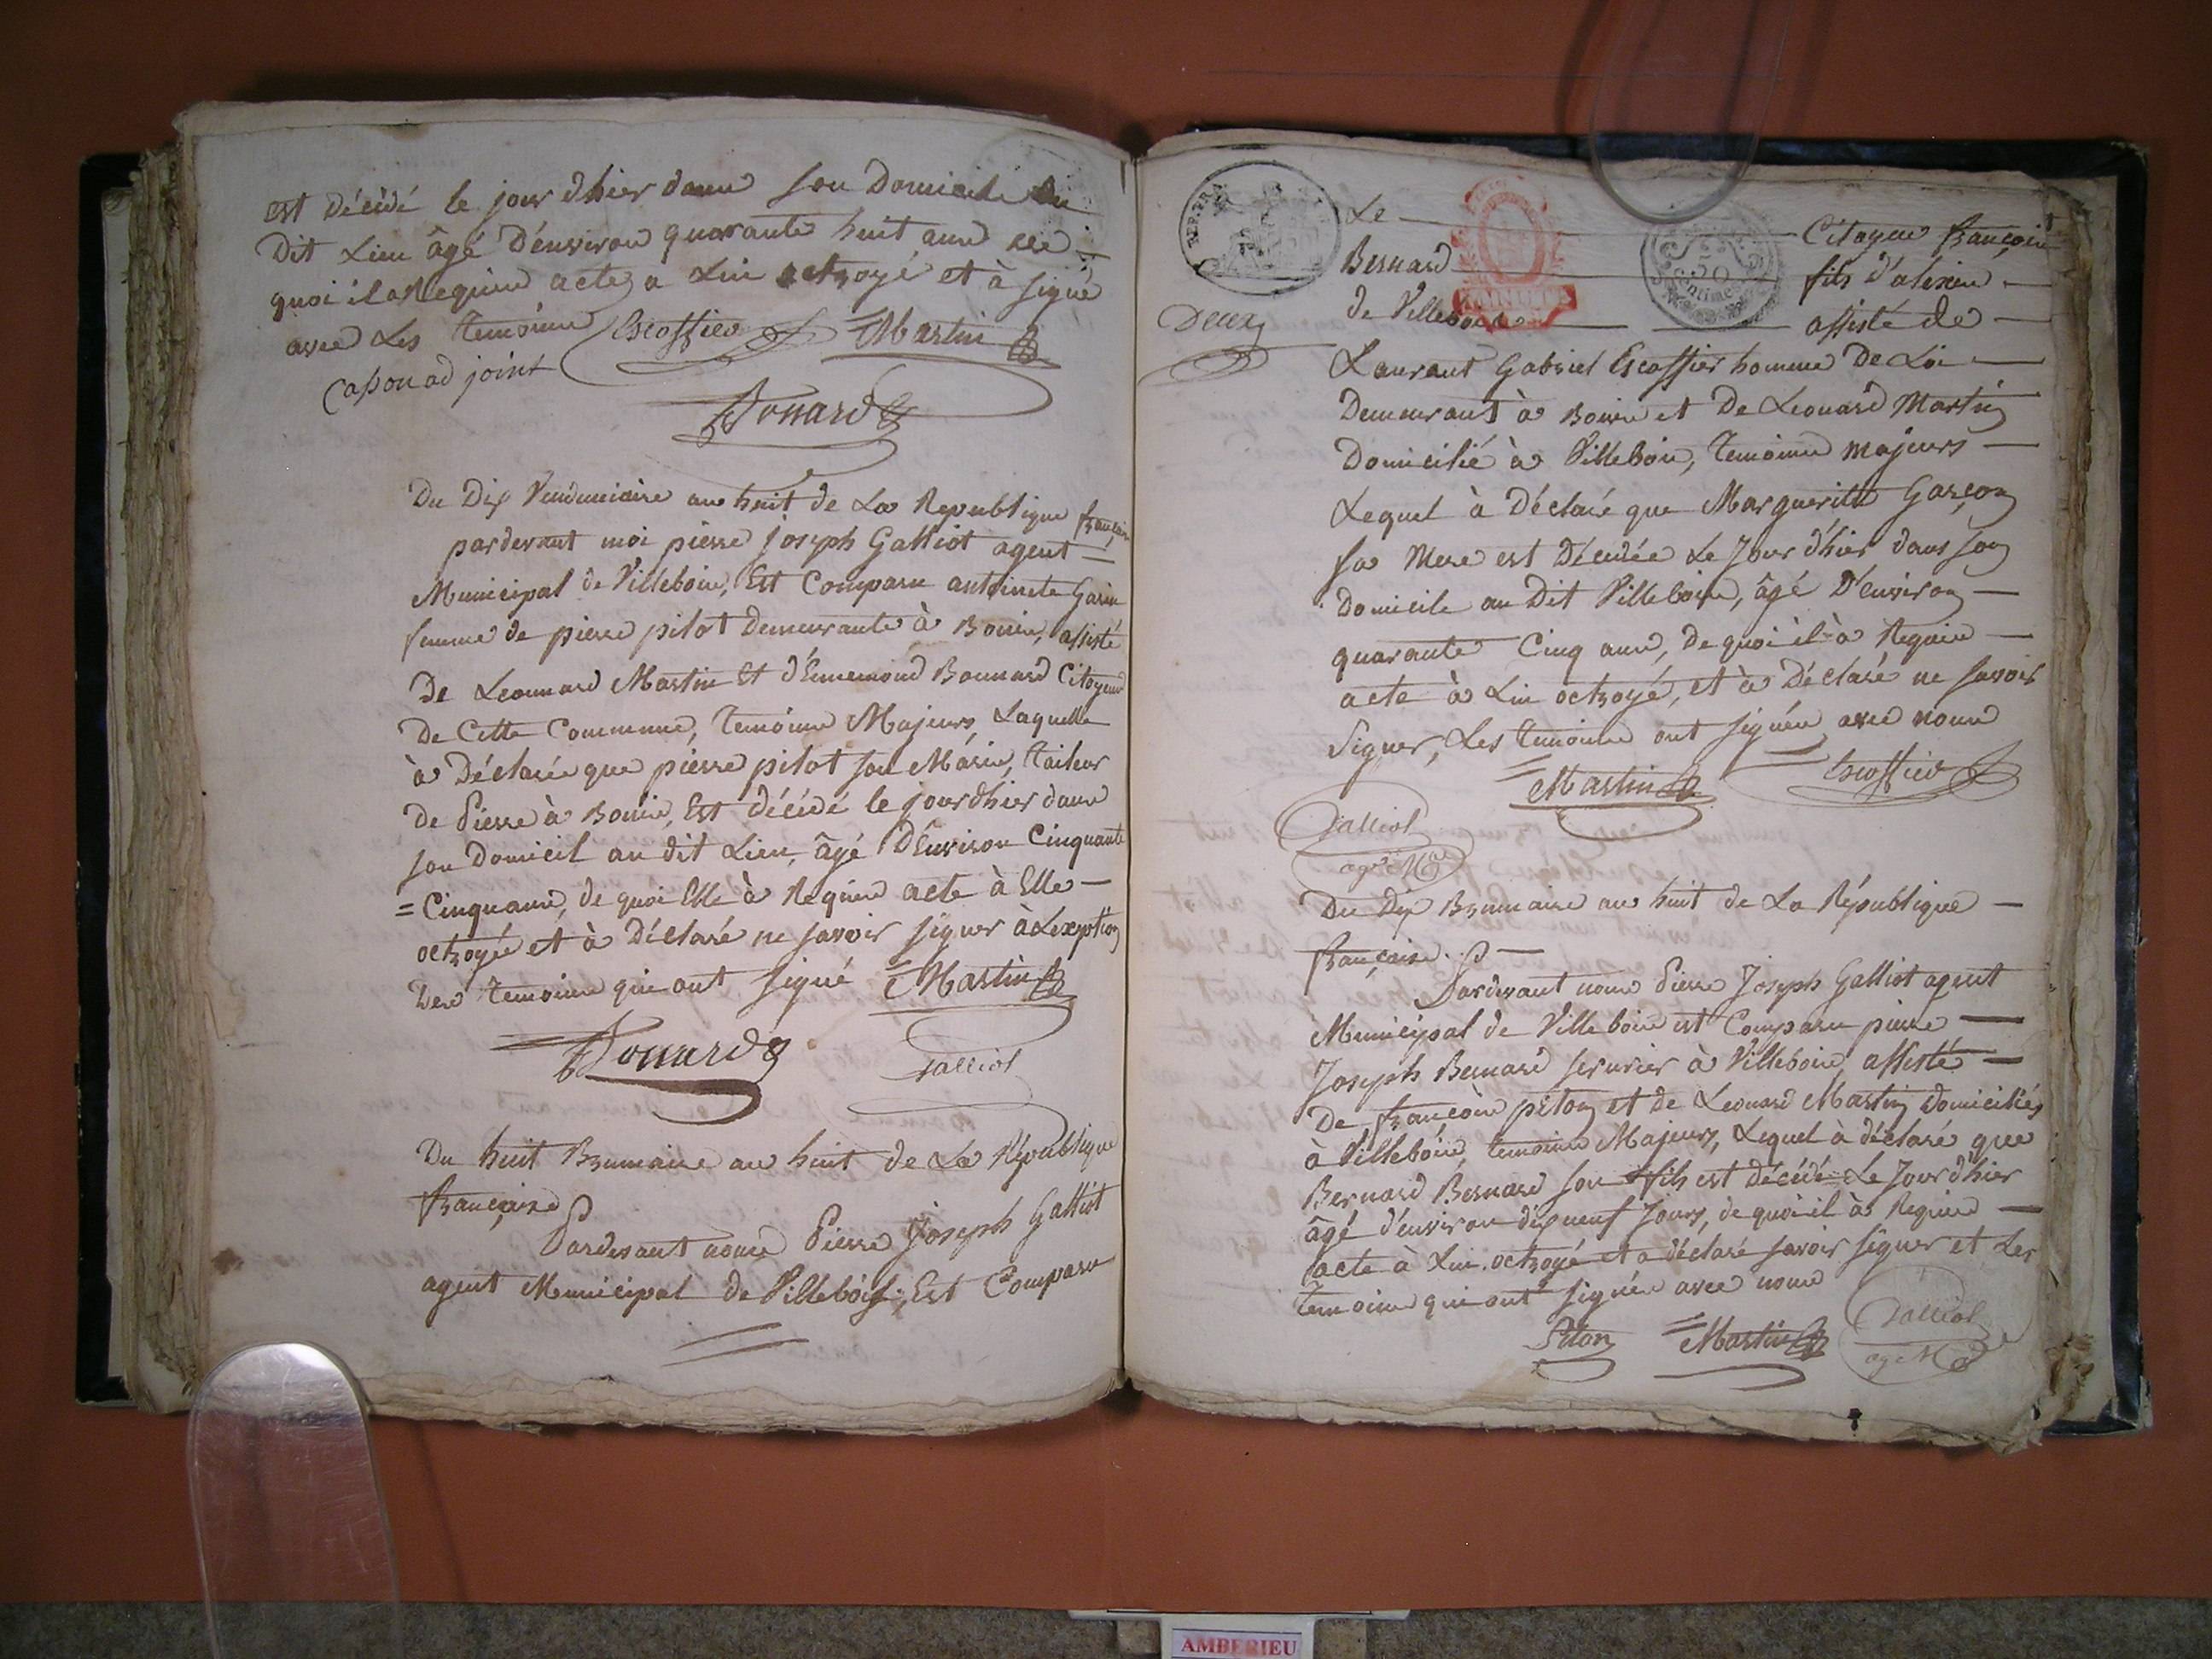 est décédé le jour dhier dans son Domicile au
Dit Lieu âgé D'environ quarante huit ans de
quoi il a Requis acte a Lui octroyé et à signé
avec Les temoins Escoffier Martin
Capon ad joint
Bonard
Du Dix Vendemiaire an huit de La Republique française
pardevant moi pierre joseph Galliot agent
Municipal de Villebois, Est Comparu antoinete Garin
femme de pierre pilot demeurante à Bouis, assisté
De Leonnard Martin Et d'Ennemond Bonnard Citoyens
De Cette Commune, temoins Majeurs, Laquelle
à Déclarée que pierre pilot son Marie, taileur
De Pierre à Bouis, Est décédé le jour dhier dans
son Domicil au dit Lieu, âgé D'Environ Cinquante
= Cinq ans, de quoi Elle à Requis acte à Elle
octroyée et à Déclaré ne savoir signer à Lexeption
Des temoins qui ont signé Martin
Bonard Galliot
Du huit Brumaire an huit de La République
française
Pardevant nous Pierre Joseph Galliot
agent Municipal de Villebois, Est Comparu
REP. FRA.
50
Centimes
Deux
Le Citoyen françois
Bernard fils d'alexis
de Villebois assisté de
Laurant Gabriel Escoffier homme De Loi
Demeurant à Bouis et De Leonard Martin
Domicilié à Villebois, temoins majeurs
Lequel à Déclaré que Marguerite Garçon
sa Mere est Décédée Le Jour d'hier dans son
Domicile au Dit Villebois, âgé D'environ
quarante Cinq ans, de quoi il à Requis
acte à Lui octroyé, et à Déclaré ne savoir
Signer, Les temoins ont signés avec nous
Martin Escoffier
Galliot
agt Mal
Du Dix Brumaire an huit de La République
française.
Pardevant nous Pierre Joseph Galliot agent
Municipal de Villebois est Comparu pierre
Joseph Bernard serurier à Villebois, assisté
De françois piton et de Leonard Martin Domiciliés
à Villebois, temoins Majeurs, Lequel à déclaré que
Bernard Bernard son fils est décédé Le Jour d'hier
âgé d'environ dix neuf Jours, de quoi il à Requis
acte à Lui octroyé et a déclaré savoir signer et Les
temoins qui ont signés avec nous
Piton Martin Galliot
ag Mal
AMBERIEU